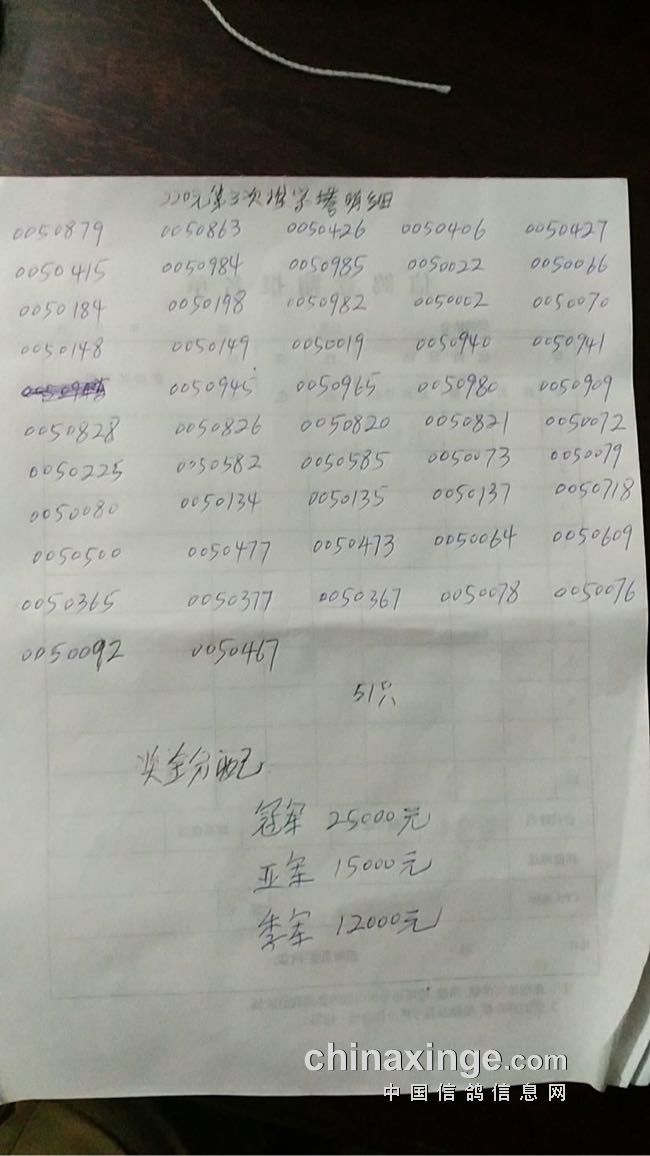 220元第三次 明细
0050879 0050863 0050426 0050406 0050427
0050415 0050984 0050985 0050022 0050066
0050184 0050198 0050982 0050002 0050070
0050148 0050149 0050019 0050940 0050941
0050945 0050965 0050980 0050909
0050828 0050826 0050820 0050821 0050072
0050225 0050582 0050585 0050073 0050079
0050080 0050134 0050135 0050137 0050718
0050500 0050477 0050473 0050064 0050609
0050365 0050377 0050367 0050078 0050076
0050092 0050467
51只
奖金分配
冠军 25000元
亚军 15000元
季军 12000元
chinaxinge.com
中国信鸽信息网